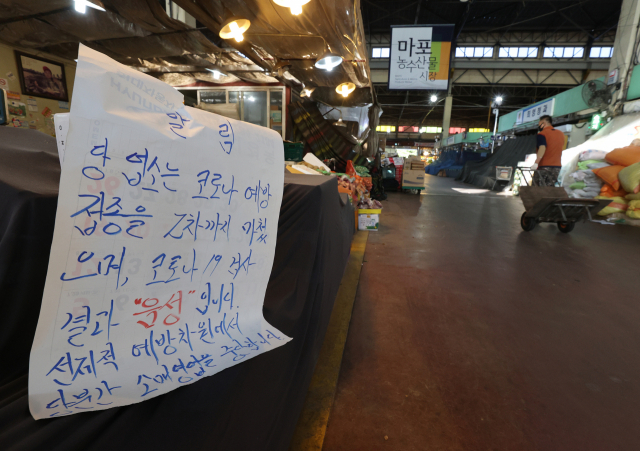 알 림
당 업소는 코로나 예방
접종을 2차까지 마쳤
으며, 코로나19 검사
결과 "음성" 입니다.
선제적 예방차원에서
당분간 소매영업을 중단합니다
마포
농수산물
시장